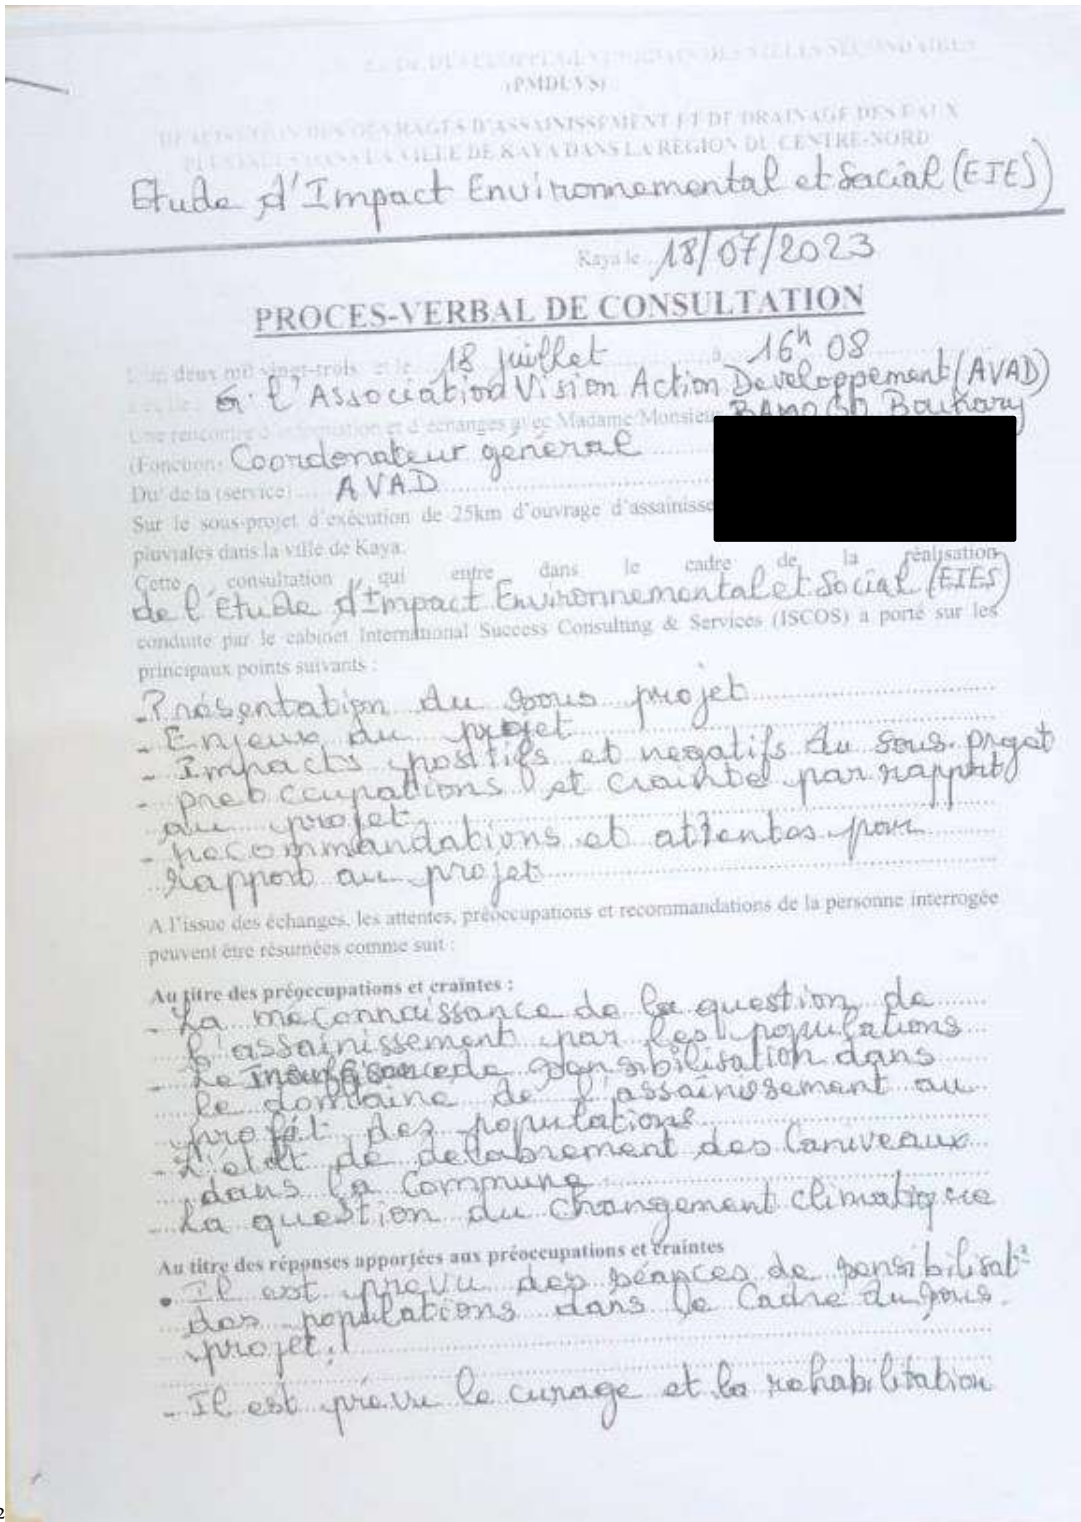 DE DEVELOPPEMENT DES VILLES SECONDAIRES
(PMDUVS)
REALISATION DES OUVRAGES D'ASSAINISSEMENT ET DE DRAINAGE DES EAUX
PLUVIALES DANS LA VILLE DE KAYA DANS LA REGION DU CENTRE-NORD
Etude d'Impact Environnemental et Social (EIES)
Kaya le 18/07/2023
PROCES-VERBAL DE CONSULTATION
L'an deux mil vingt-trois et le 18 juillet à 16h 08
à l'Association Vision Action Developpement (AVAD)
Une rencontre d'information et d'échanges avec Madame/Monsieur Boukary
(Fonction) Coordonateur général
Du/ de la (service) AVAD
Sur le sous-projet d'exécution de 25km d'ouvrage d'assainisse
pluviales dans la ville de Kaya.
Cette consultation qui entre dans le cadre de la réalisation
de l'Etude d'Impact Environnemental et Social (EIES)
conduite par le cabinet International Success Consulting & Services (ISCOS) a porté sur les
principaux points suivants :
- Présentation du sous projet
- Enjeux du projet
- Impacts positifs et negatifs du sous-projet
- preoccupations et crainte par rapport
au projet
- recommandations et attentes par
rapport au projet
A l'issue des échanges, les attentes, préoccupations et recommandations de la personne interrogée
peuvent être résumées comme suit :
Au titre des préoccupations et craintes :
- La meconnaissance de la question de
l'assainissement par les populations
- Le Insuffisance de sensibilisation dans
le domaine de l'assainissement au
profit des populations
- L'état de delabrement des Caniveaux
dans la Commune
- La question du changement climatique
Au titre des réponses apportées aux préoccupations et craintes
• Il est prevu des séances de sensibilisat°
des populations dans le Cadre du sous-
projet
- Il est prevu le curage et la rehabilitation
2